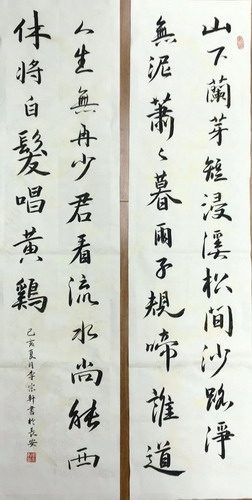 山下蘭芽短浸溪松間沙路淨
無泥蕭〻暮雨子規啼誰道
人生無再少君看流水尚能西
休將白髮唱黃鷄
己亥夏月李宗軒書於長安